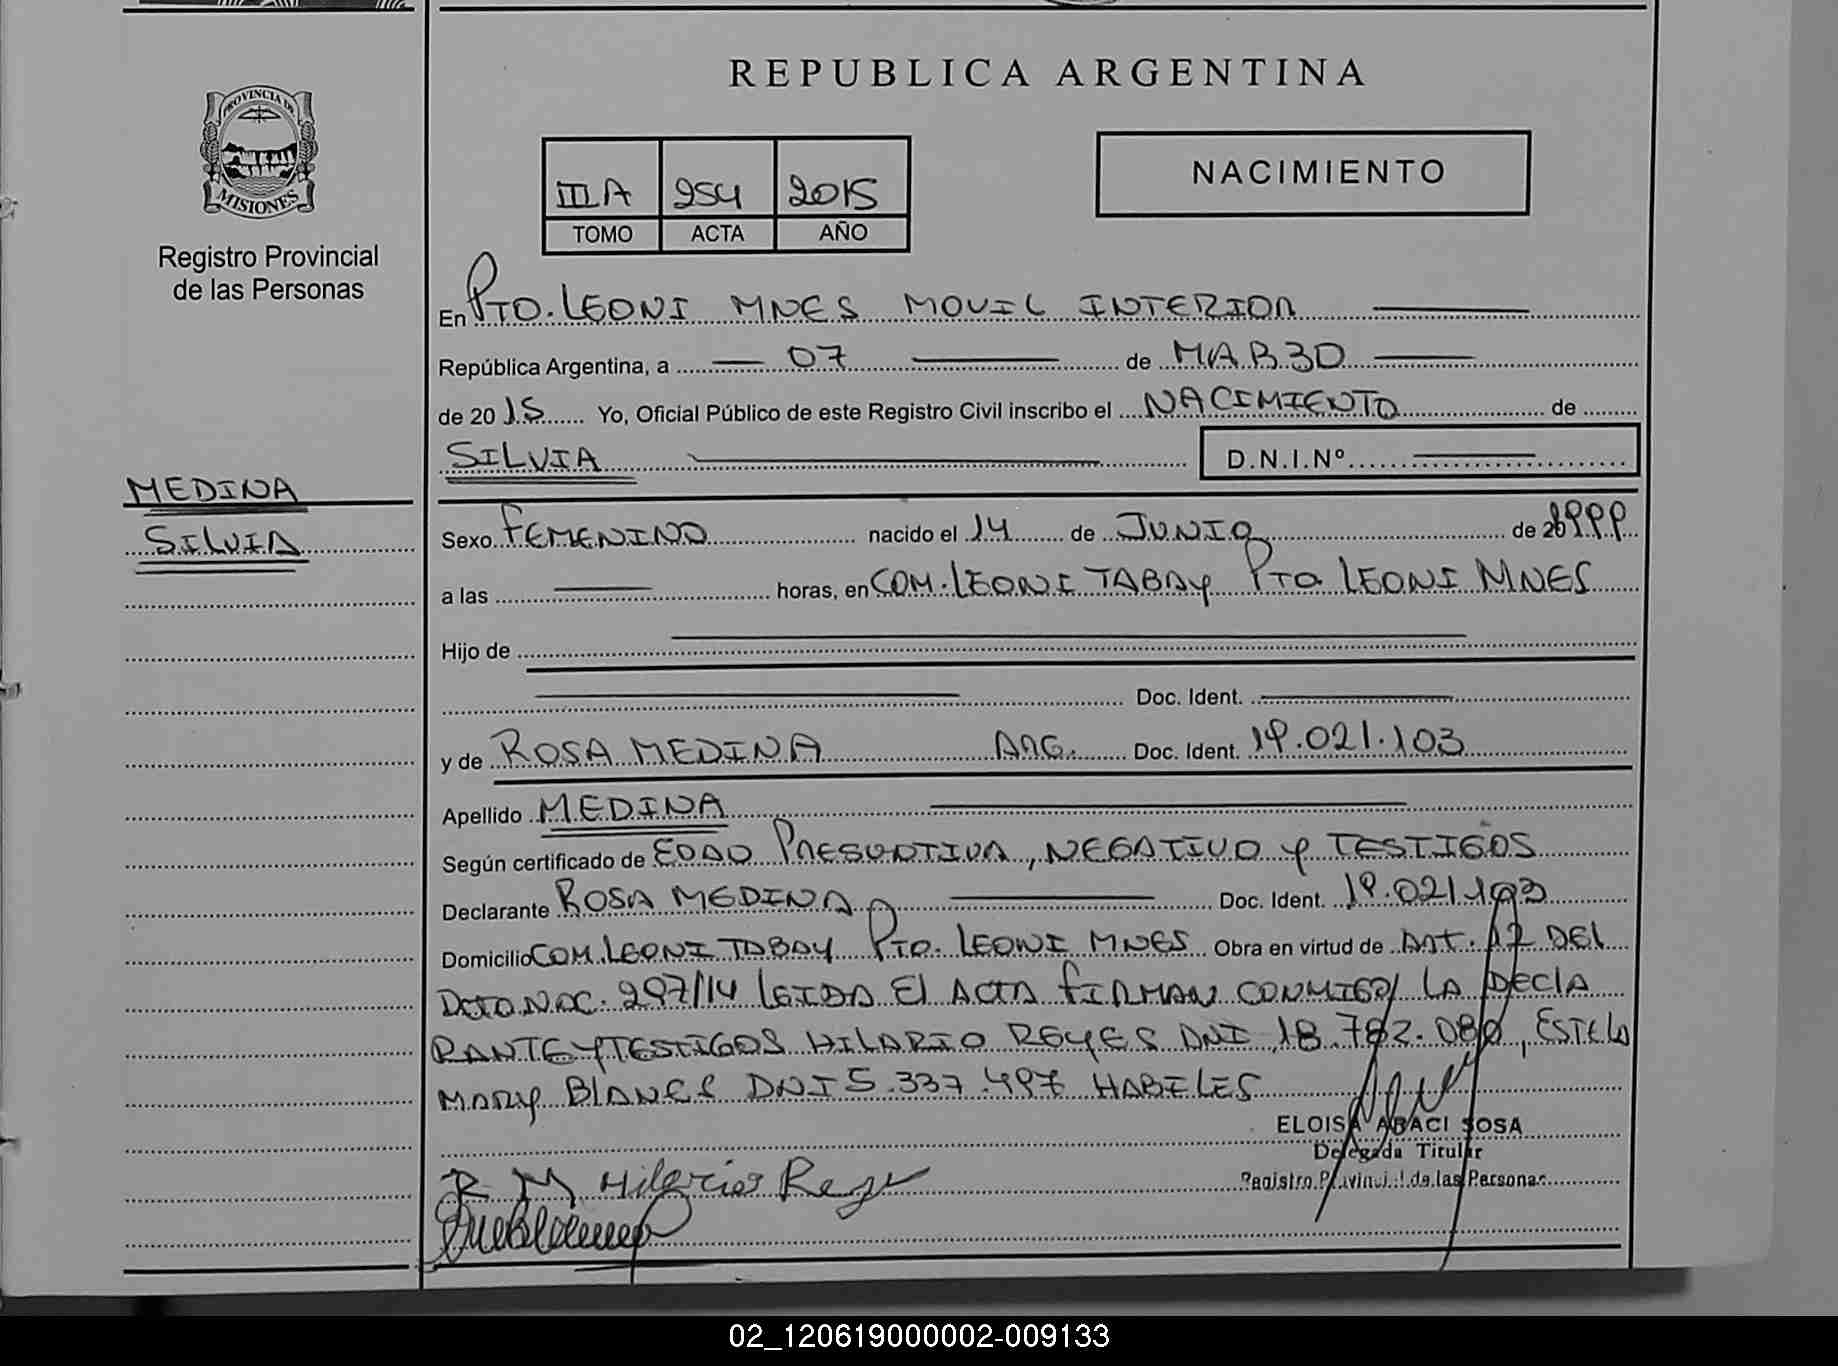 REPUBLICA ARGENTINA
PROVINCIA DE
MISIONES
Registro Provincial
de las Personas
III A 254 2015
TOMO ACTA AÑO
NACIMIENTO
En PTO. LEONI MNES MOVIL INTERIOR
República Argentina, a 07 de MARZO
de 2015 Yo, Oficial Público de este Registro Civil inscribo el NACIMIENTO de
SILVIA D.N.I.Nº
MEDINA
SILVIA
Sexo FEMENINO nacido el 14 de JUNIO de 1999
a las horas, en COM. LEONI TABAY PTO LEONI MNES
Hijo de
Doc. Ident.
y de ROSA MEDINA ARG. Doc. Ident. 19.021.103
Apellido MEDINA
Según certificado de EDAD PRESUNTIVA, NEGATIVO y TESTIGOS
Declarante ROSA MEDINA Doc. Ident. 19.021.103
Domicilio COM. LEONI TABAY PTO. LEONI MNES Obra en virtud de ART. 12 DEL
DCTO NAC. 297/14 LEIDA El ACTA FIRMAN CONMIGO LA DECLA
RANTE y TESTIGOS HILARIO REYES DNI 18.782.080, ESTELA
MARY BLANES DNI 5.337.497 HABELES
ELOISA ABACI SOSA
Delegada Titular
Registro Provincial de las Personas
R M Hilario Reye
02_120619000002-009133